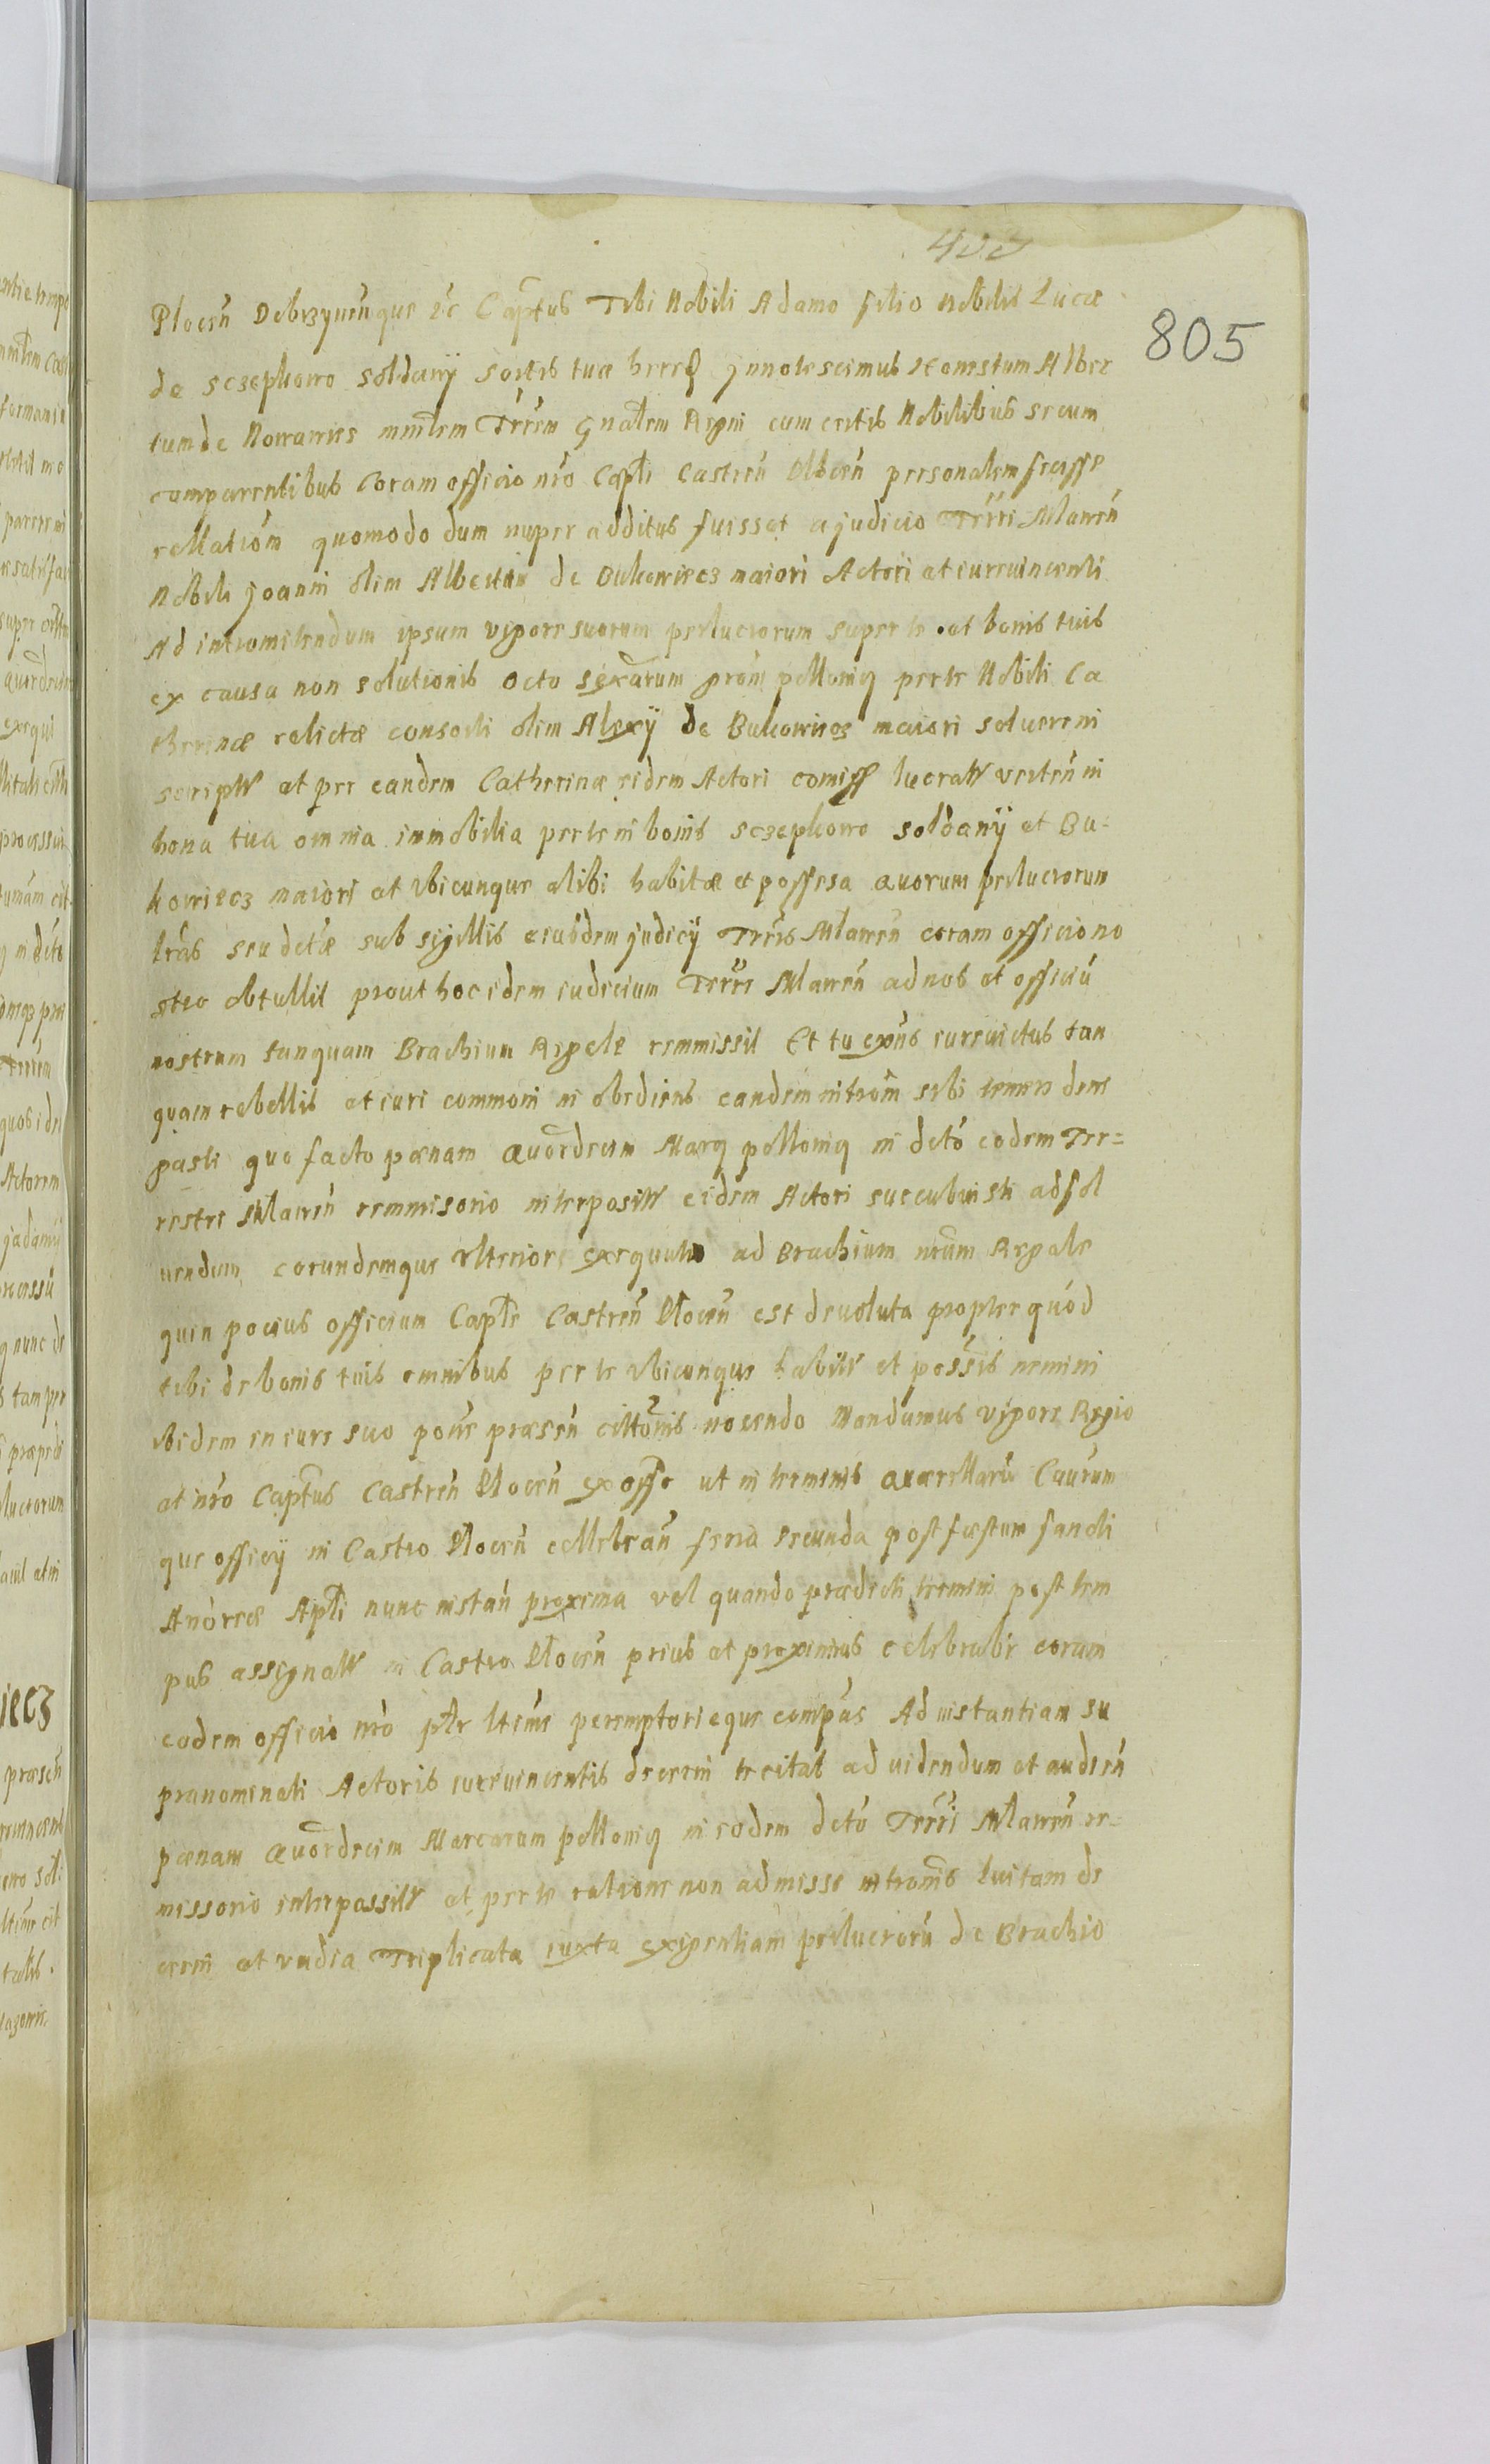 805
Plocen̄ Dobrzynen̄que &c Cap̄tus Tibi Nobili Adamo filio Nobilis Lucæ
de sczepkowo soldanÿ sortis tuæ hered jnnotescimus Honestum Alber
tum de Nowawies mnr̄lem Trr̄em gn̄alem Regni cum certis Nobilibus secum
comparentibus Coram officio nr̄o Cap̄li Castren̄ Plocen̄ personalem fecisse
rellatiōm quomodo dum nuper additus fuisset a judicio Terr̄i Mlawen̄
Nobili joanni olim Alberti de Bukowiecz maiori Actori et iurevincenti
Ad intromitendum ipsum vigore suorum perlucrorum super te et bonis tuis
ex causa non solutionis octo sexarum prom pollonig per te Nobili Ca
therinæ relictæ consorti olim Alexÿ de Bukowiecz maiori soluere ni
script et per eandem Catherinæ eidem Actori comiss lucratt verten̄ in
bona tua omnia immobilia per te in bonis sczepkowo soldanÿ et Bu=
kowiecz maiori et vbicunque alibi habitæ et possesa Quorum perlucrorum
lr̄as seu dctæ sub sigillis eiusdem judicÿ Trr̄is Mlawen̄ coram officio no
stro obtullit prout hoc idem iudicium Terr̄e Mlawen̄ ad nos et officiū
nostrum tanquam Brachium Regale remmissit Et tu exn̄s iurevictus tan
quam rebellis et iuri commoni in obediens eandem intrōm sibi
pasti quo facto pœnam Quordecim Marg pollonig in dctō eodem Ter=
restre Mlawen̄ remmisorio interposit eidem Actori succubuisti ad sol
uendum eorundemque vlteriore exequut ad Brachium nr̄um Regale
quin pocius officium Cap̄le Castren̄ Plocen̄ est devoluta propter quod
tibi de bonis tuis omnibus per te vbicunque habit et possis nemini
ibidem in iure suo præsen̄ citt̄onis nocendo Mandamus vigore Regio
et nr̄o Cap̄tus Castren̄ Plocen̄ ex off̄o ut in terminis Quærellarū Caurum
que officÿ in Castro Plocen̄ cellebran̄ feria secunda post fæstum sancti
Andreæ Apl̄i nunc instan̄ proxima vel quando prædicti termini post tem
pus assignatt in Castro Plocen̄ prius et proximius celebrabr̄ coram
eodem officio nr̄o pl̄r lt̄ime peremptorieque compas Ad instantiam su
pranominati Actoris iurevincentis decerni te citat ad uidendum et audien̄
pœnam Quordecim Marcarum pollonig in eodem dctō Terr̄i Mlawen̄ re=
missorio interpossitt et per te ratione non admisse intromis luitam de
cerni et vadia Triplicata iuxta exigentiam perlucrorū de Brachio